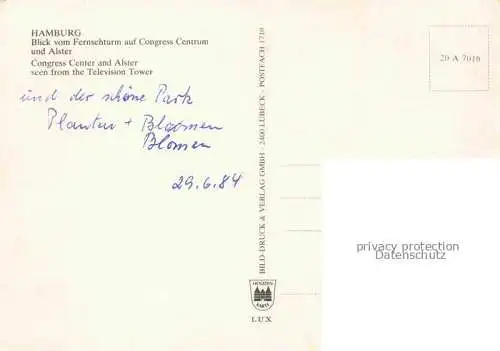 HAMBURG
Blick vom Fernsehturm auf Congress Centrum
und Alster
Congress Center and Alster
seen from the Television Tower
und der schöne Park
Planten + Bloomen
Blomen
29.6.84
BILD-DRUCK & VERLAG GMBH · 2400 LÜBECK · POSTFACH 1710
20 A 7016
privacy protection
HOLSTEN
KARTE
LUX